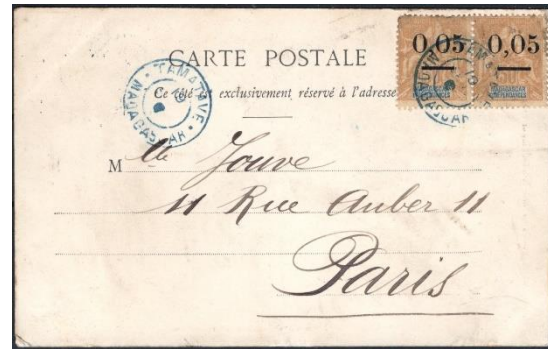 0,05 0,05
CARTE POSTALE
Ce côté est exclusivement réservé à l'adresse
TAMATAVE
MADAGASCAR
Mlle Jouve
11 Rue Auber 11
Paris